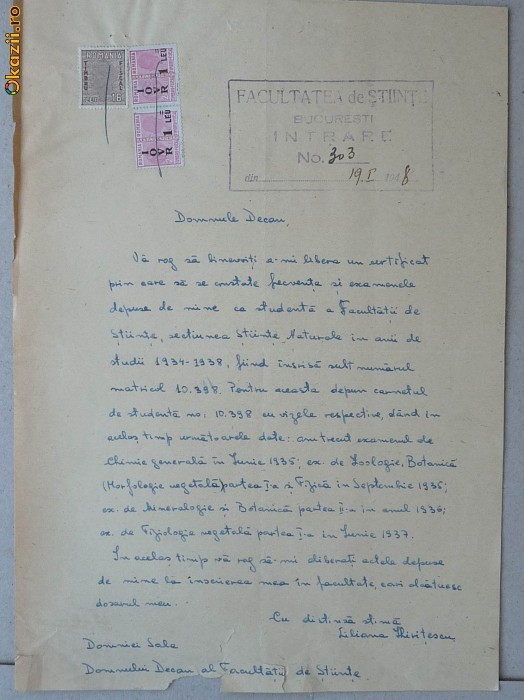 Okazii.ro
ROMANIA
IOVR 1 LEU
IOVR 1 LEU
FACULTATEA de ȘTIINȚE
BUCUREȘTI
INTRARE
No. 303
din 19.I 1948
Domnule Decan,
Vă rog să binevoiți a-mi libera un certificat
prin care să se constate frecvența și examenele
depuse de mine ca studentă a Facultății de
Științe, secțiunea Științe Naturale în anii de
studii 1934-1938, fiind înscrisă subt numărul
matricol 10.398. Pentru aceasta depun carnetul
de studentă no. 10.398 cu vizele respective, dând în
acelaș timp următoarele date: am trecut examenul de
Chimie generală în Iunie 1935; ex. de Zoologie, Botanică
(Morfologie vegetală partea I-a și Fizică în Septembrie 1935;
ex. de Mineralogie și Botanică partea II-a în anul 1936;
ex. de Fiziologie vegetală partea I-a în Iunie 1937.
In acelaș timp vă rog să-mi eliberați actele depuse
de mine la înscrierea mea în facultate, cari alcătuesc
dosarul meu.
Cu distinsă stimă
Liliana
Domniei Sale
Domnului Decan al Facultății de Științe